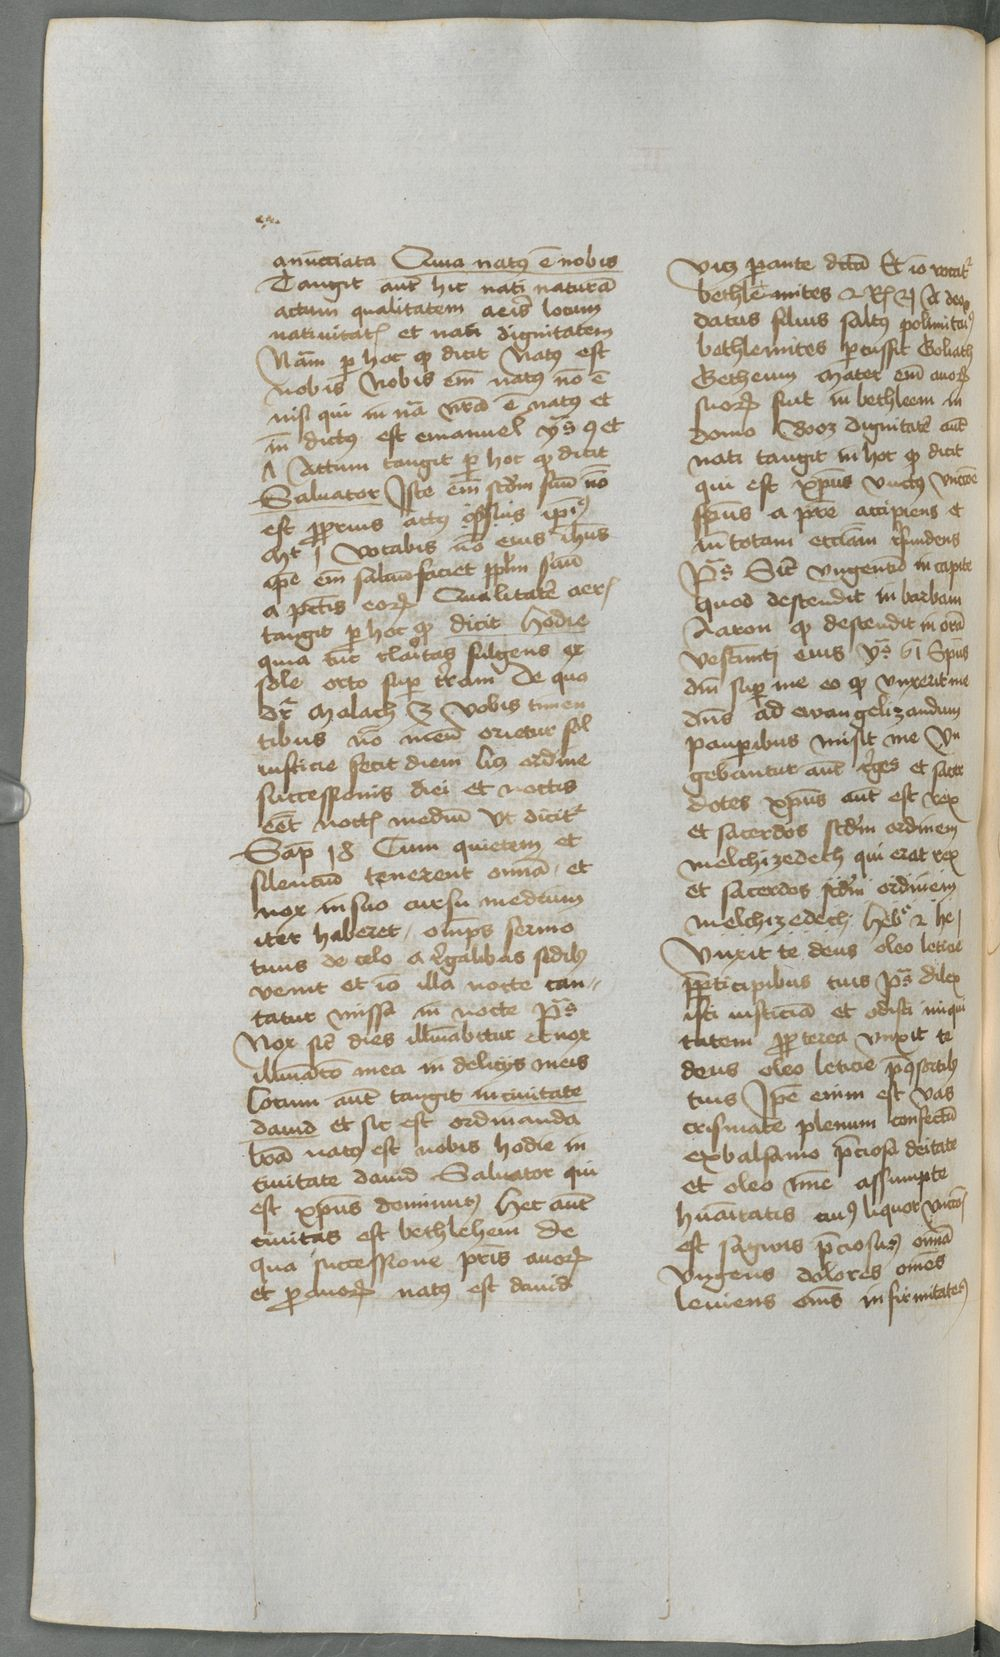 anūcciata Quia natꝰ ē nobis
Tangit autē hic nati naturā
actum qualitatem aeris locum
natiuitatꝭ et nati dignitatem
Nam̄ ꝑ hoc ꝙ dicit Natꝰ est
nobis Nobis em̄ natꝰ nō ē
nisi qui in nā vrā ē natꝰ et
in dictꝰ est emanuel ys̄ 9 et
Actum tangit ꝑ hoc ꝙ dicit
Saluator Iste em̄ scd̄m suū nō
est ꝓprius actꝰ ipīꝰ
Mt 1 Vocabis nō eius ihūs
ipe em̄ saluū faciet pplm̄ suū
a pctīs eoꝝ Qualitatē aerꝭ
tangit ꝑ hoc ꝙ dicit Hodie
quia tūc claritas fulgens ex
sole orto suꝑ trā̄m De quo
dr̄ Malach 3 Vobis timen
tibus nō meū orietur sol
iusticie fecit diem hꝫ ordīne
successionis diei et noctis
eēt noctꝭ mediū Vt dicitᷣ
Sap̄ 18 Cum quietem et
silenciū tenerent omnia et
nox in suo cursu medium
iter haberet / omp̄s sermo
tuus de celo a regalibus sedibꝰ
venit et iō illa nocte can=
tatur missa in nocte ps̄
Nox sic̄ dies illuīabitur et nox
illuīatō mea in delicijs meis
Locum autē tangit in ciuitate
dauid et sic est ordinanda
lrā̄ natꝰ est nobis hodie in
ciuitate dauid Saluator qui
est xp̄us dominus Hec autē
ciuitas est bethlehem De
qua successione pr̄is auoꝝ
et ꝓauoꝝ natꝰ est dauid
vicꝫ ꝑ ante dictā Et iō vocatᷣ
bethlēmites 2 Rꝭ 21 A deo
datus filius saltꝰ polimitariꝰ
bethlemites ꝑcussit Goliath
Getheum Mater em̄ auoꝝ
suoꝝ fuit in bethleem in
domo Booz Dignitatē autē
nati tangit in hoc ꝙ dicit
qui est xp̄us vnctꝰ vnctōe
sp̄us a pr̄e accipiens et
in totam eccl̄iam refundens
Ps̄ Sic̄ vngentū in capite
Quod descendit in barbam
Aaron ꝙ descendit in orā
vestimēti eius ys̄ 61 Sp̄us
dn̄i suꝑ me eo ꝙ vnxerit me
dn̄s ad ewangelizandum
pauperibus misit me Vn
gebantur autē reges et sacer
dotes xp̄us autē est rex
et sacerdos scd̄m ordinem
melchizedech qui erat rex
et sacerdos scd̄m ordinem
melchizedech Heb̄ 2 he
Vnxit te deus oleo leticie
ꝑticipibus tuis ps̄ dilex
isti iusticiā et odisti iniqui
tatem ꝓpterea vnxit te
deus oleo leticie p̄ cōsortibꝰ
tuis Ipse enim est vas
crismate plenum confectū
ex balsamo p̄ciosa deitate
et oleo assumpte
hūanitatis cuiꝰ liquor vnctōꝭ
est sagwis p̄ciosusꝰ omnia
Vngens dolores omēs
leniens om̄s infirmitatesꝰ